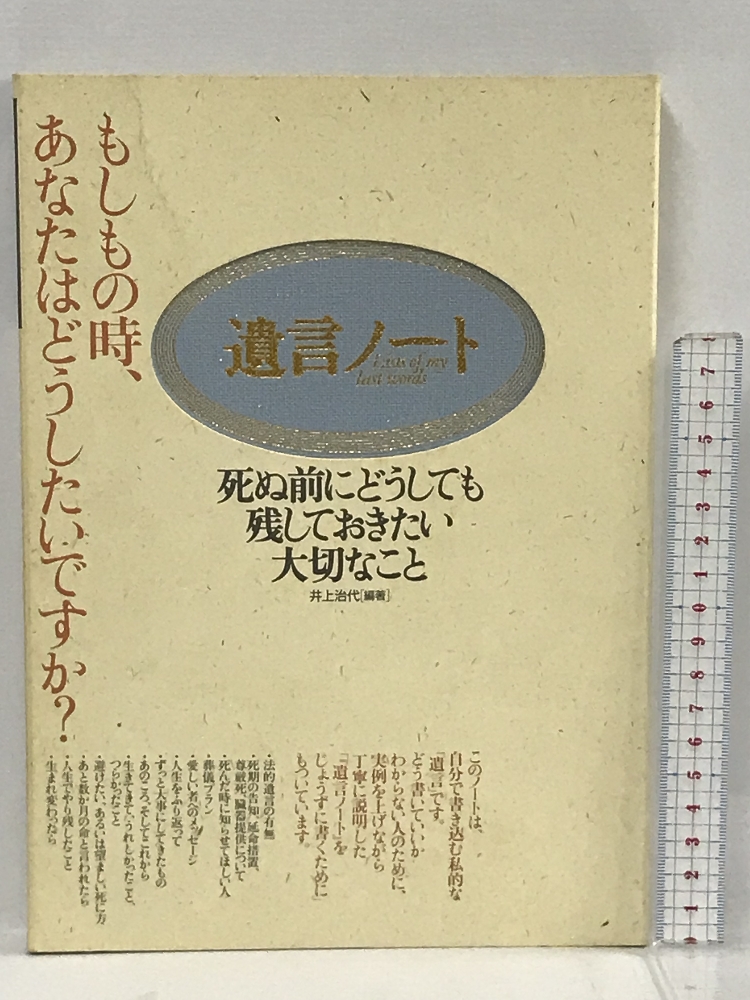 もしもの時、
あなたはどうしたいですか?
遺言ノート
Lists of my
last words
死ぬ前にどうしても
残しておきたい
大切なこと
井上治代[編著]
このノートは、
自分で書き込む私的な
「遺言」です。
どう書いていいか
わからない人のために、
実例を上げながら
丁寧に説明した
「『遺言ノート』を
じょうずに書くために」
もついています。
・法的遺言の有無
・死期の告知、延命措置、
尊厳死、臓器提供について
・死んだ時に知らせてほしい人
・葬儀プラン
・愛しい者へのメッセージ
・人生をふり返って
・ずっと大事にしてきたもの
・あのころ、そしてこれから
・生きてきて、うれしかったこと、
つらかったこと
・避けたい、あるいは望ましい死に方
・あと数か月の命と言われたら
・人生でやり残したこと
・生まれ変わったら
7
6
5
4
3
2
1
0
9
8
7
6
5
4
3
2
1